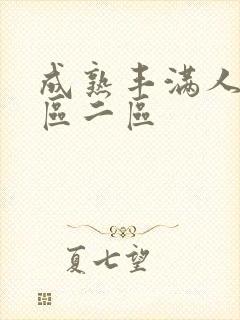 成熟丰满人
區二區
夏七望